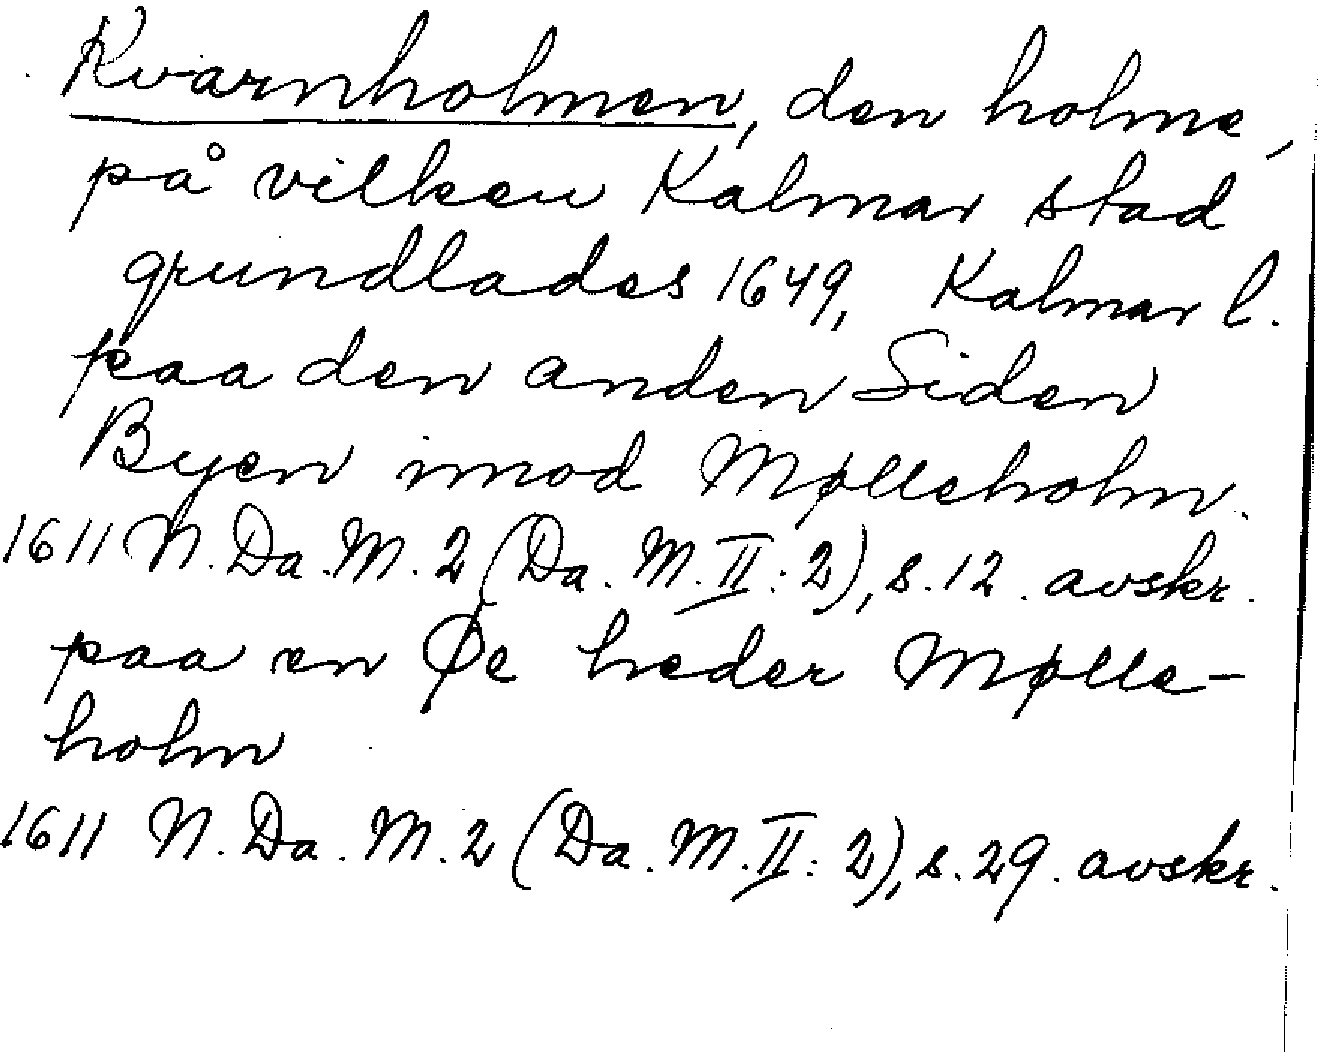 Kvarnholmen, den holme,
på vilken Kalmar stad
grundlades 1649, Kalmar l.
paa den anden Siden
Byen imod Mølleholm.
1611 N. Da. M. 2 (Da. M. II: 2), s. 12. avskr.
paa en Øe heder Mølle-
holm
1611 N. Da. M. 2 (Da. M. II: 2), s. 29. avskr.